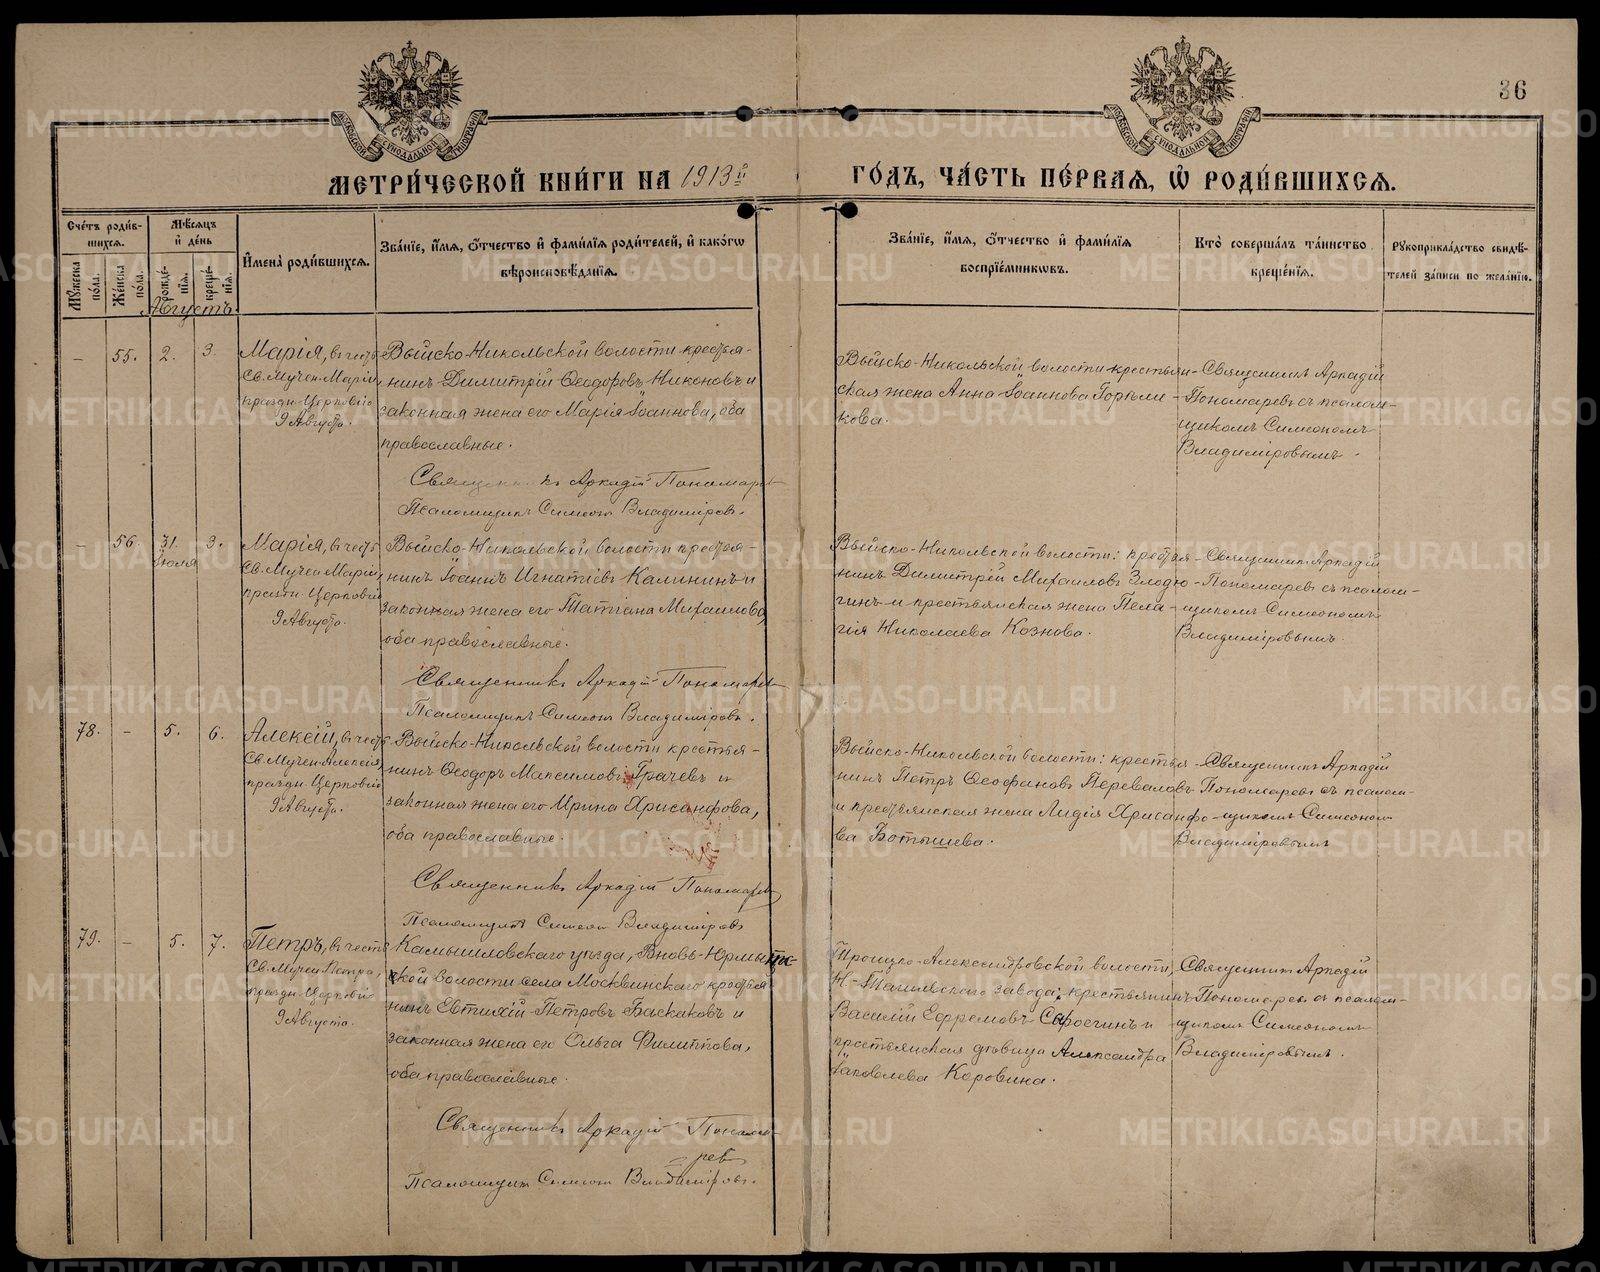 36
МЕТРИ́ЧЕСКОЙ КНИ́ГИ НА 1913й
ГО́ДЪ, ЧА́СТЬ ПЕ́РВАЯ, Ѡ РОДИ́ВШИХСЯ.
Сче́тъ роди́в-
шихся.
Мѣ́сяцъ
и де́нь
Мꙋ́жеска по́ла.
Же́нска по́ла.
рожде́нїя.
креще́нїя.
И҆мена̀ роди́вшихся.
Зва́нїе, и҆́мя, ѻ҆́тчество и҆ фами́лїя роди́телей, и҆ како́гѡ
вѣроисповѣ́данїя.
Зва́нїе, и҆́мя, ѻ҆́тчество и҆ фами́лїя
воспрїе́мникѡвъ.
Кто̀ соверша́лъ та́инство
креще́нїя.
Рꙋкоприкла́дство свидѣ́-
телей за́писи по жела́нїю.
Августъ.
– 55. 2. 3.
Марія, въ честь
Св. Мучен. Маріи,
праздн. Церковію
9 Августа.
Выйско-Никольской волости крестья-
нинъ Димитрій Ѳеодоровъ Никоновъ и
законная жена его Марія Іоаннова, оба
православные.
Священникъ Аркадій Пономарев
Псаломщикъ Симеонъ Владиміровъ.
Выйско-Никольской волости крестьян-
ская жена Анна Іоаннова Горѣли-
кова.
Священникъ Аркадій
Пономаревъ съ псалом-
щикомъ Симеономъ
Владиміровымъ.
– 56. 31. Іюля 3.
Марія, въ честь
Св. Мучен. Маріи,
праздн. Церковію
9 Августа.
Выйско-Никольской волости крестья-
нинъ Іоаннъ Игнатіевъ Калининъ и
законная жена его Татіана Михаилова,
оба православные.
Священникъ Аркадій Пономарев
Псаломщикъ Симеонъ Владиміровъ.
Выйско-Никольской волости: крестья-
нинъ Димитрій Михаиловъ Злодѣ-
гинъ и крестьянская жена Пела-
гія Николаева Кознова.
Священникъ Аркадій
Пономаревъ съ псалом-
щикомъ Симеономъ
Владиміровымъ.
78. – 5. 6.
Алексій, въ честь
Св. Мучен. Алексія,
праздн. Церковію
9 Августа.
Выйско-Никольской волости крестья-
нинъ Ѳеодоръ Максимовъ Грачевъ и
законная жена его Ирина Хрисанфова,
оба православные.
Священникъ Аркадій Пономарев
Псаломщикъ Симеонъ Владиміровъ
Выйско-Никольской волости: крестья-
нинъ Петръ Ѳеофановъ Переваловъ
и крестьянская жена Лидія Хрисанфо-
ва Ботышева.
Священникъ Аркадій
Пономаревъ съ псалом-
щикомъ Симеоном
Владиміровымъ
79. – 5. 7.
Петръ, въ честь
Св. Мучен. Петра,
праздн. Церковію
9 Августа.
Камышловскаго уѣзда, Вновь-Юрмытс-
кой волости села Москвинскаго крестья
нинъ Евтихій Петровъ Баскаковъ и
законная жена его Ольга Филиппова,
оба православные.
Священникъ Аркадій Понома-
рев
Псаломщикъ Симеонъ Владиміровъ.
Троицко-Александровской волости,
Н-Тагильскаго завода: крестьянинъ
Василій Ефремовъ Сыроегинъ и
крестьянская дѣвица Александра
Іаковлева Коровина.
Священникъ Аркадій
Пономаревъ съ псалом-
щикомъ Симеономъ
Владиміровымъ.